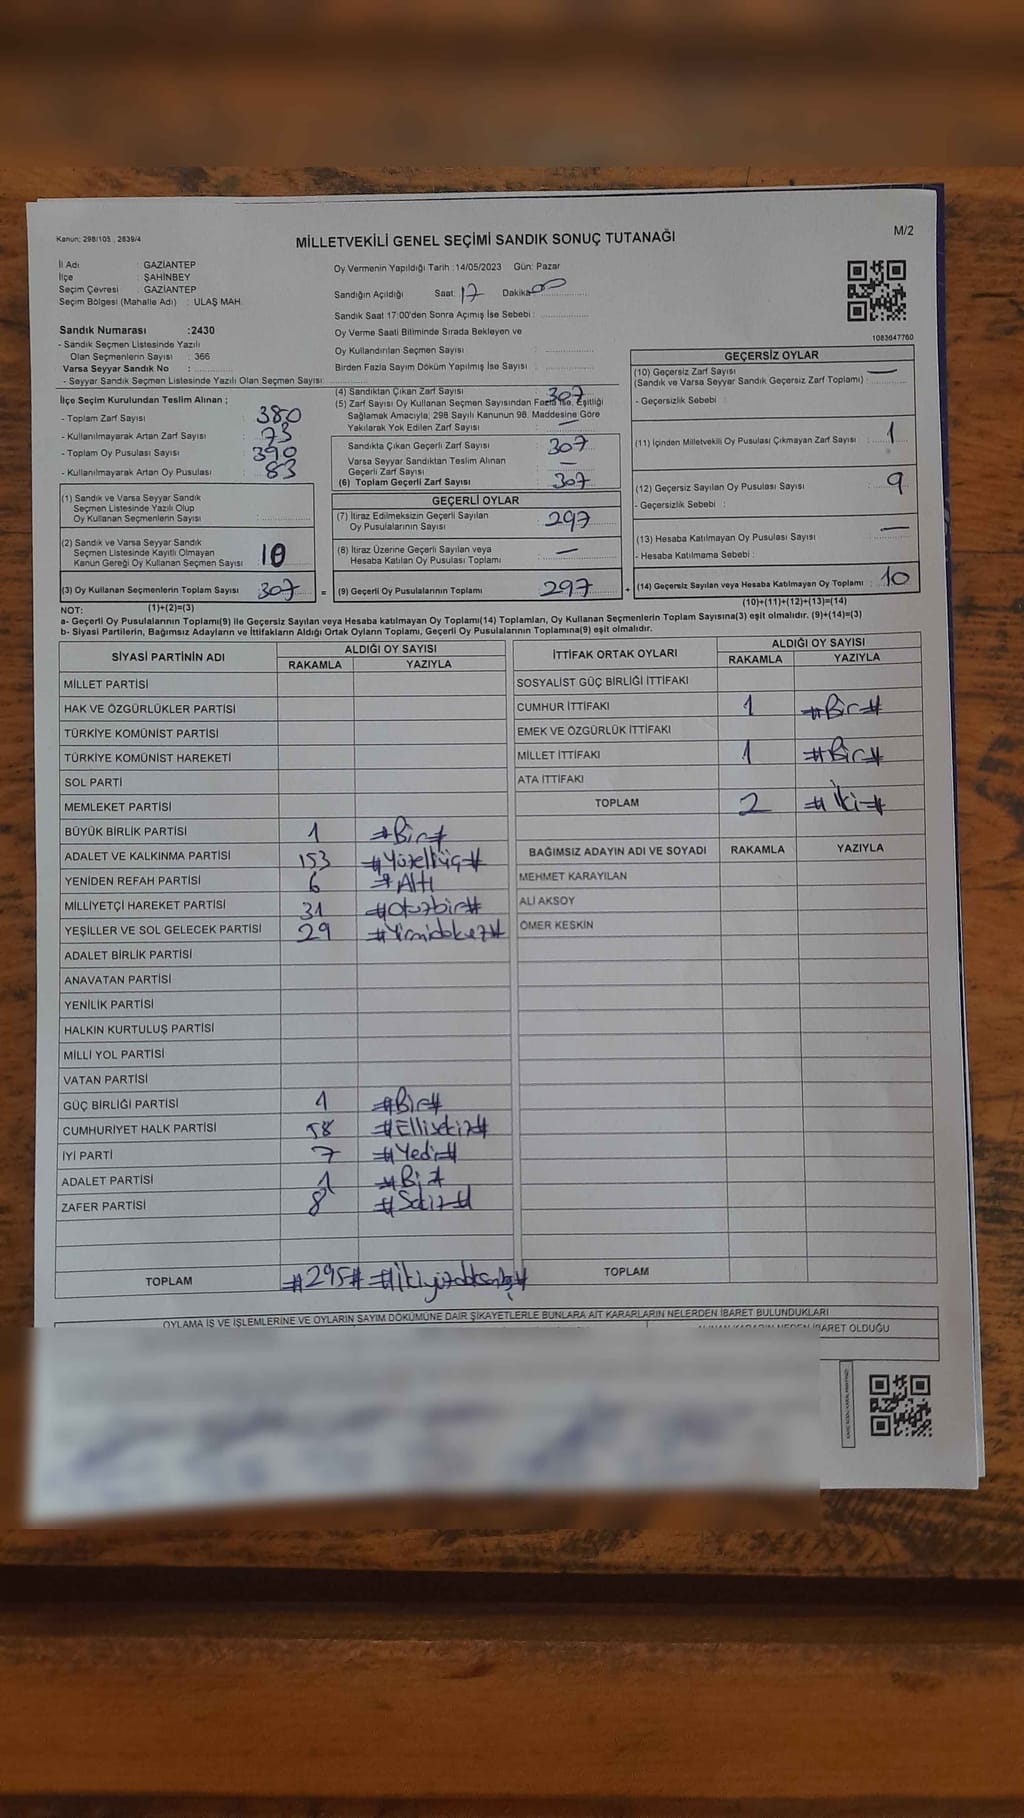 Kanun: 298/105 , 2839/4
MİLLETVEKİLİ GENEL SEÇİMİ SANDIK SONUÇ TUTANAĞI
M/2
İl Adı : GAZİANTEP
İlçe : ŞAHİNBEY
Seçim Çevresi : GAZİANTEP
Seçim Bölgesi (Mahalle Adı) : ULAŞ MAH.
Sandık Numarası :2430
- Sandık Seçmen Listesinde Yazılı
Olan Seçmenlerin Sayısı : 366
Varsa Seyyar Sandık No :
- Seyyar Sandık Seçmen Listesinde Yazılı Olan Seçmen Sayısı:
Oy Vermenin Yapıldığı Tarih :14/05/2023 Gün: Pazar
Sandığın Açıldığı Saat: 17 Dakika 00
Sandık Saat 17:00'den Sonra Açılmış İse Sebebi :
Oy Verme Saati Bitiminde Sırada Bekleyen ve
Oy Kullandırılan Seçmen Sayısı :
Birden Fazla Sayım Döküm Yapılmış İse Sayısı :
1083647760
İlçe Seçim Kurulundan Teslim Alınan ;
- Toplam Zarf Sayısı : 380
- Kullanılmayarak Artan Zarf Sayısı : 73
- Toplam Oy Pusulası Sayısı : 390
- Kullanılmayarak Artan Oy Pusulası : 83
(1) Sandık ve Varsa Seyyar Sandık
Seçmen Listesinde Yazılı Olup
Oy Kullanan Seçmenlerin Sayısı :
(2) Sandık ve Varsa Seyyar Sandık
Seçmen Listesinde Kayıtlı Olmayan
Kanun Gereği Oy Kullanan Seçmen Sayısı :
(3) Oy Kullanan Seçmenlerin Toplam Sayısı : 307 =
(1)+(2)=(3)
(4) Sandıktan Çıkan Zarf Sayısı : 307
(5) Zarf Sayısı Oy Kullanan Seçmen Sayısından Fazla İse, Eşitliği
Sağlamak Amacıyla; 298 Sayılı Kanunun 98. Maddesine Göre
Yakılarak Yok Edilen Zarf Sayısı : —
Sandıkta Çıkan Geçerli Zarf Sayısı : 307
Varsa Seyyar Sandıktan Teslim Alınan
Geçerli Zarf Sayısı : —
(6) Toplam Geçerli Zarf Sayısı : 307
GEÇERLİ OYLAR
(7) İtiraz Edilmeksizin Geçerli Sayılan
Oy Pusulalarının Sayısı : 297
(8) İtiraz Üzerine Geçerli Sayılan veya
Hesaba Katılan Oy Pusulası Toplamı : —
(9) Geçerli Oy Pusulalarının Toplamı : 297 +
GEÇERSİZ OYLAR
(10) Geçersiz Zarf Sayısı
(Sandık ve Varsa Seyyar Sandık Geçersiz Zarf Toplamı) : —
- Geçersizlik Sebebi :
(11) İçinden Milletvekili Oy Pusulası Çıkmayan Zarf Sayısı : 1
(12) Geçersiz Sayılan Oy Pusulası Sayısı : 9
- Geçersizlik Sebebi :
(13) Hesaba Katılmayan Oy Pusulası Sayısı : —
- Hesaba Katılmama Sebebi :
(14) Geçersiz Sayılan veya Hesaba Katılmayan Oy Toplamı : 10
(10)+(11)+(12)+(13)=(14)
NOT:
a- Geçerli Oy Pusulalarının Toplamı(9) ile Geçersiz Sayılan veya Hesaba katılmayan Oy Toplamı(14) Toplamları, Oy Kullanan Seçmenlerin Toplam Sayısına(3) eşit olmalıdır. (9)+(14)=(3)
b- Siyasi Partilerin, Bağımsız Adayların ve İttifakların Aldığı Ortak Oyların Toplamı, Geçerli Oy Pusulalarının Toplamına(9) eşit olmalıdır.
SİYASİ PARTİNİN ADI ALDIĞI OY SAYISI
RAKAMLA YAZIYLA
MİLLET PARTİSİ
HAK VE ÖZGÜRLÜKLER PARTİSİ
TÜRKİYE KOMÜNİST PARTİSİ
TÜRKİYE KOMÜNİST HAREKETİ
SOL PARTİ
MEMLEKET PARTİSİ
BÜYÜK BİRLİK PARTİSİ 1 #Bir#
ADALET VE KALKINMA PARTİSİ 153 #Yüzelliüç#
YENİDEN REFAH PARTİSİ 6 #Altı
MİLLİYETÇİ HAREKET PARTİSİ 31 #Otuzbir#
YEŞİLLER VE SOL GELECEK PARTİSİ 29 #Yirmidokuz#
ADALET BİRLİK PARTİSİ
ANAVATAN PARTİSİ
YENİLİK PARTİSİ
HALKIN KURTULUŞ PARTİSİ
MİLLİ YOL PARTİSİ
VATAN PARTİSİ
GÜÇ BİRLİĞİ PARTİSİ 1 #Bir#
CUMHURİYET HALK PARTİSİ 58 #Ellisekiz#
İYİ PARTİ 7 #Yedi#
ADALET PARTİSİ 1
ZAFER PARTİSİ 8 #Sekiz#
TOPLAM #295# #İkiyüzdoksanbeş#
İTTİFAK ORTAK OYLARI ALDIĞI OY SAYISI
RAKAMLA YAZIYLA
SOSYALİST GÜÇ BİRLİĞİ İTTİFAKI
CUMHUR İTTİFAKI 1 #Bir#
EMEK VE ÖZGÜRLÜK İTTİFAKI
MİLLET İTTİFAKI 1 #Bir#
ATA İTTİFAKI
TOPLAM 2 #İki#
BAĞIMSIZ ADAYIN ADI VE SOYADI RAKAMLA YAZIYLA
MEHMET KARAYILAN
ALİ AKSOY
ÖMER KESKİN
TOPLAM
OYLAMA İŞ VE İŞLEMLERİNE VE OYLARIN SAYIM DÖKÜMÜNE DAİR ŞİKAYETLERLE BUNLARA AİT KARARLARIN NELERDEN İBARET BULUNDUKLARI
İBARET OLDUĞU